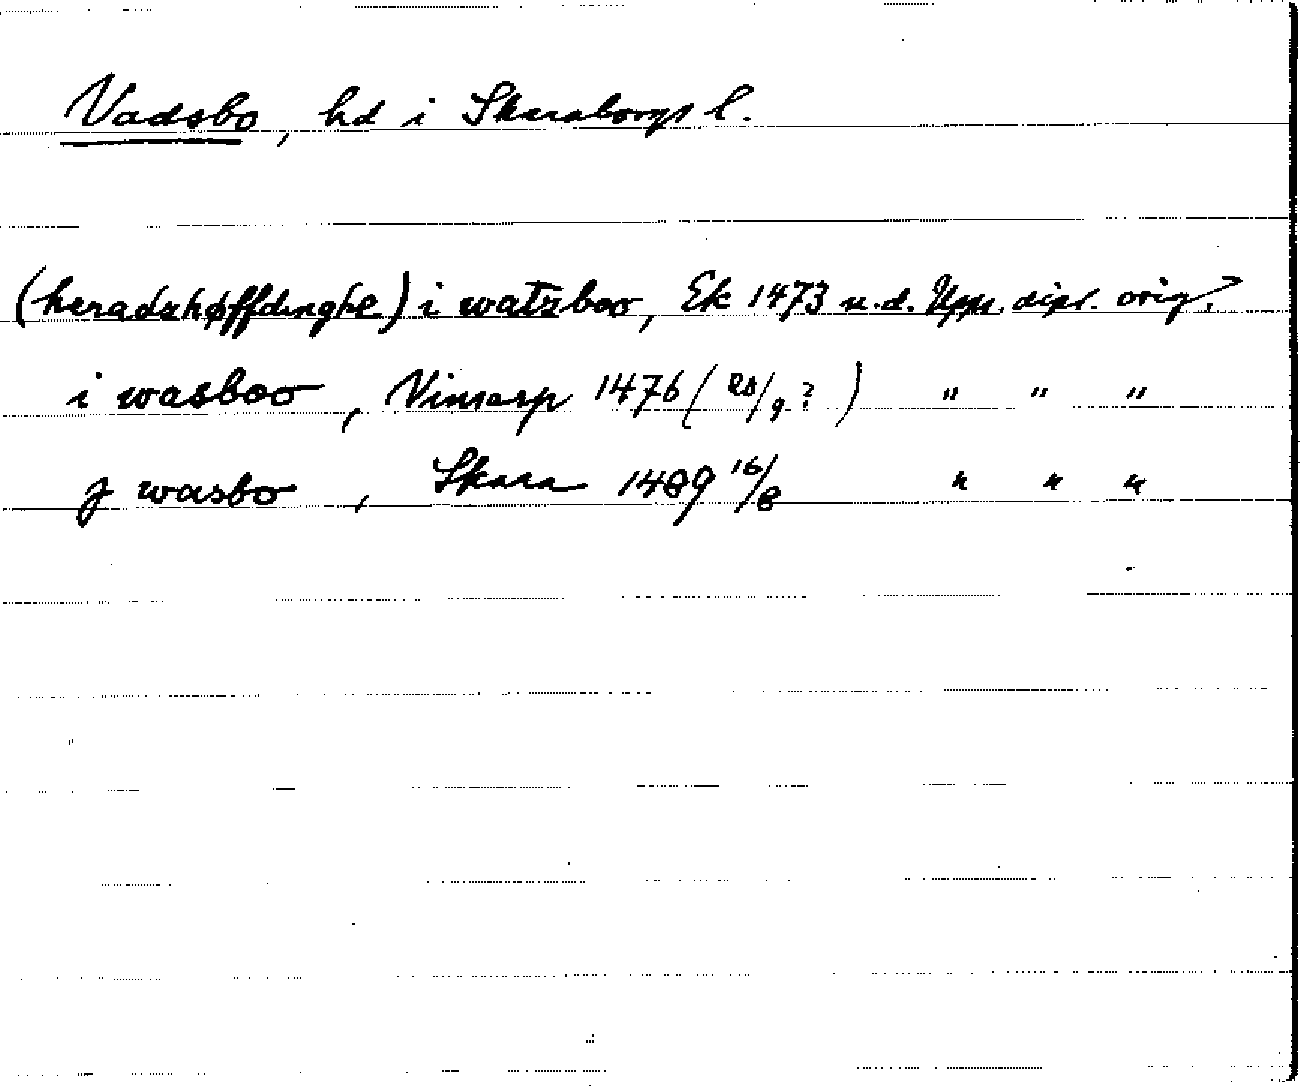 Vadsbo, hd i Skaraborgs l.
(heradzhøffdinghe) i watzboo, Ek 1473 u.d. Upps. dipl. orig.
i wasboo, Vinsarp 1476 ( /9 ?) " " "
j wasbo, Skara 1489 16/8 " " "